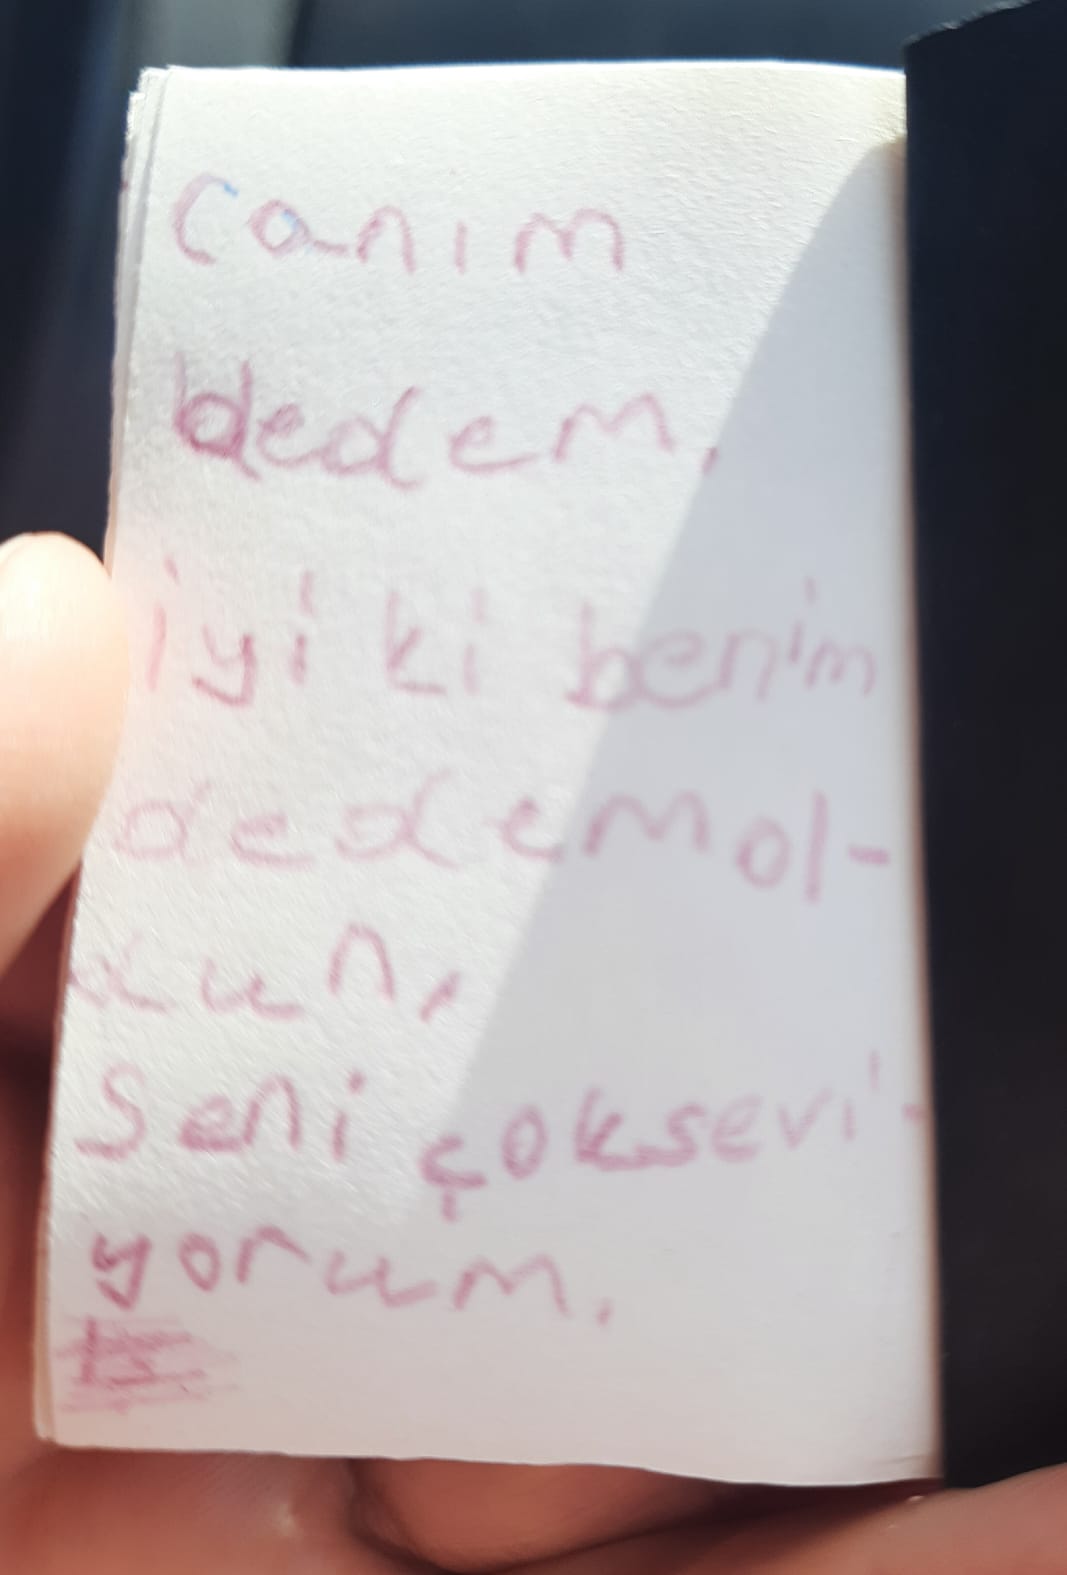 canım
dedem.
iyi ki benim
dedem ol-
dun.
Seni çok sevi-
yorum.